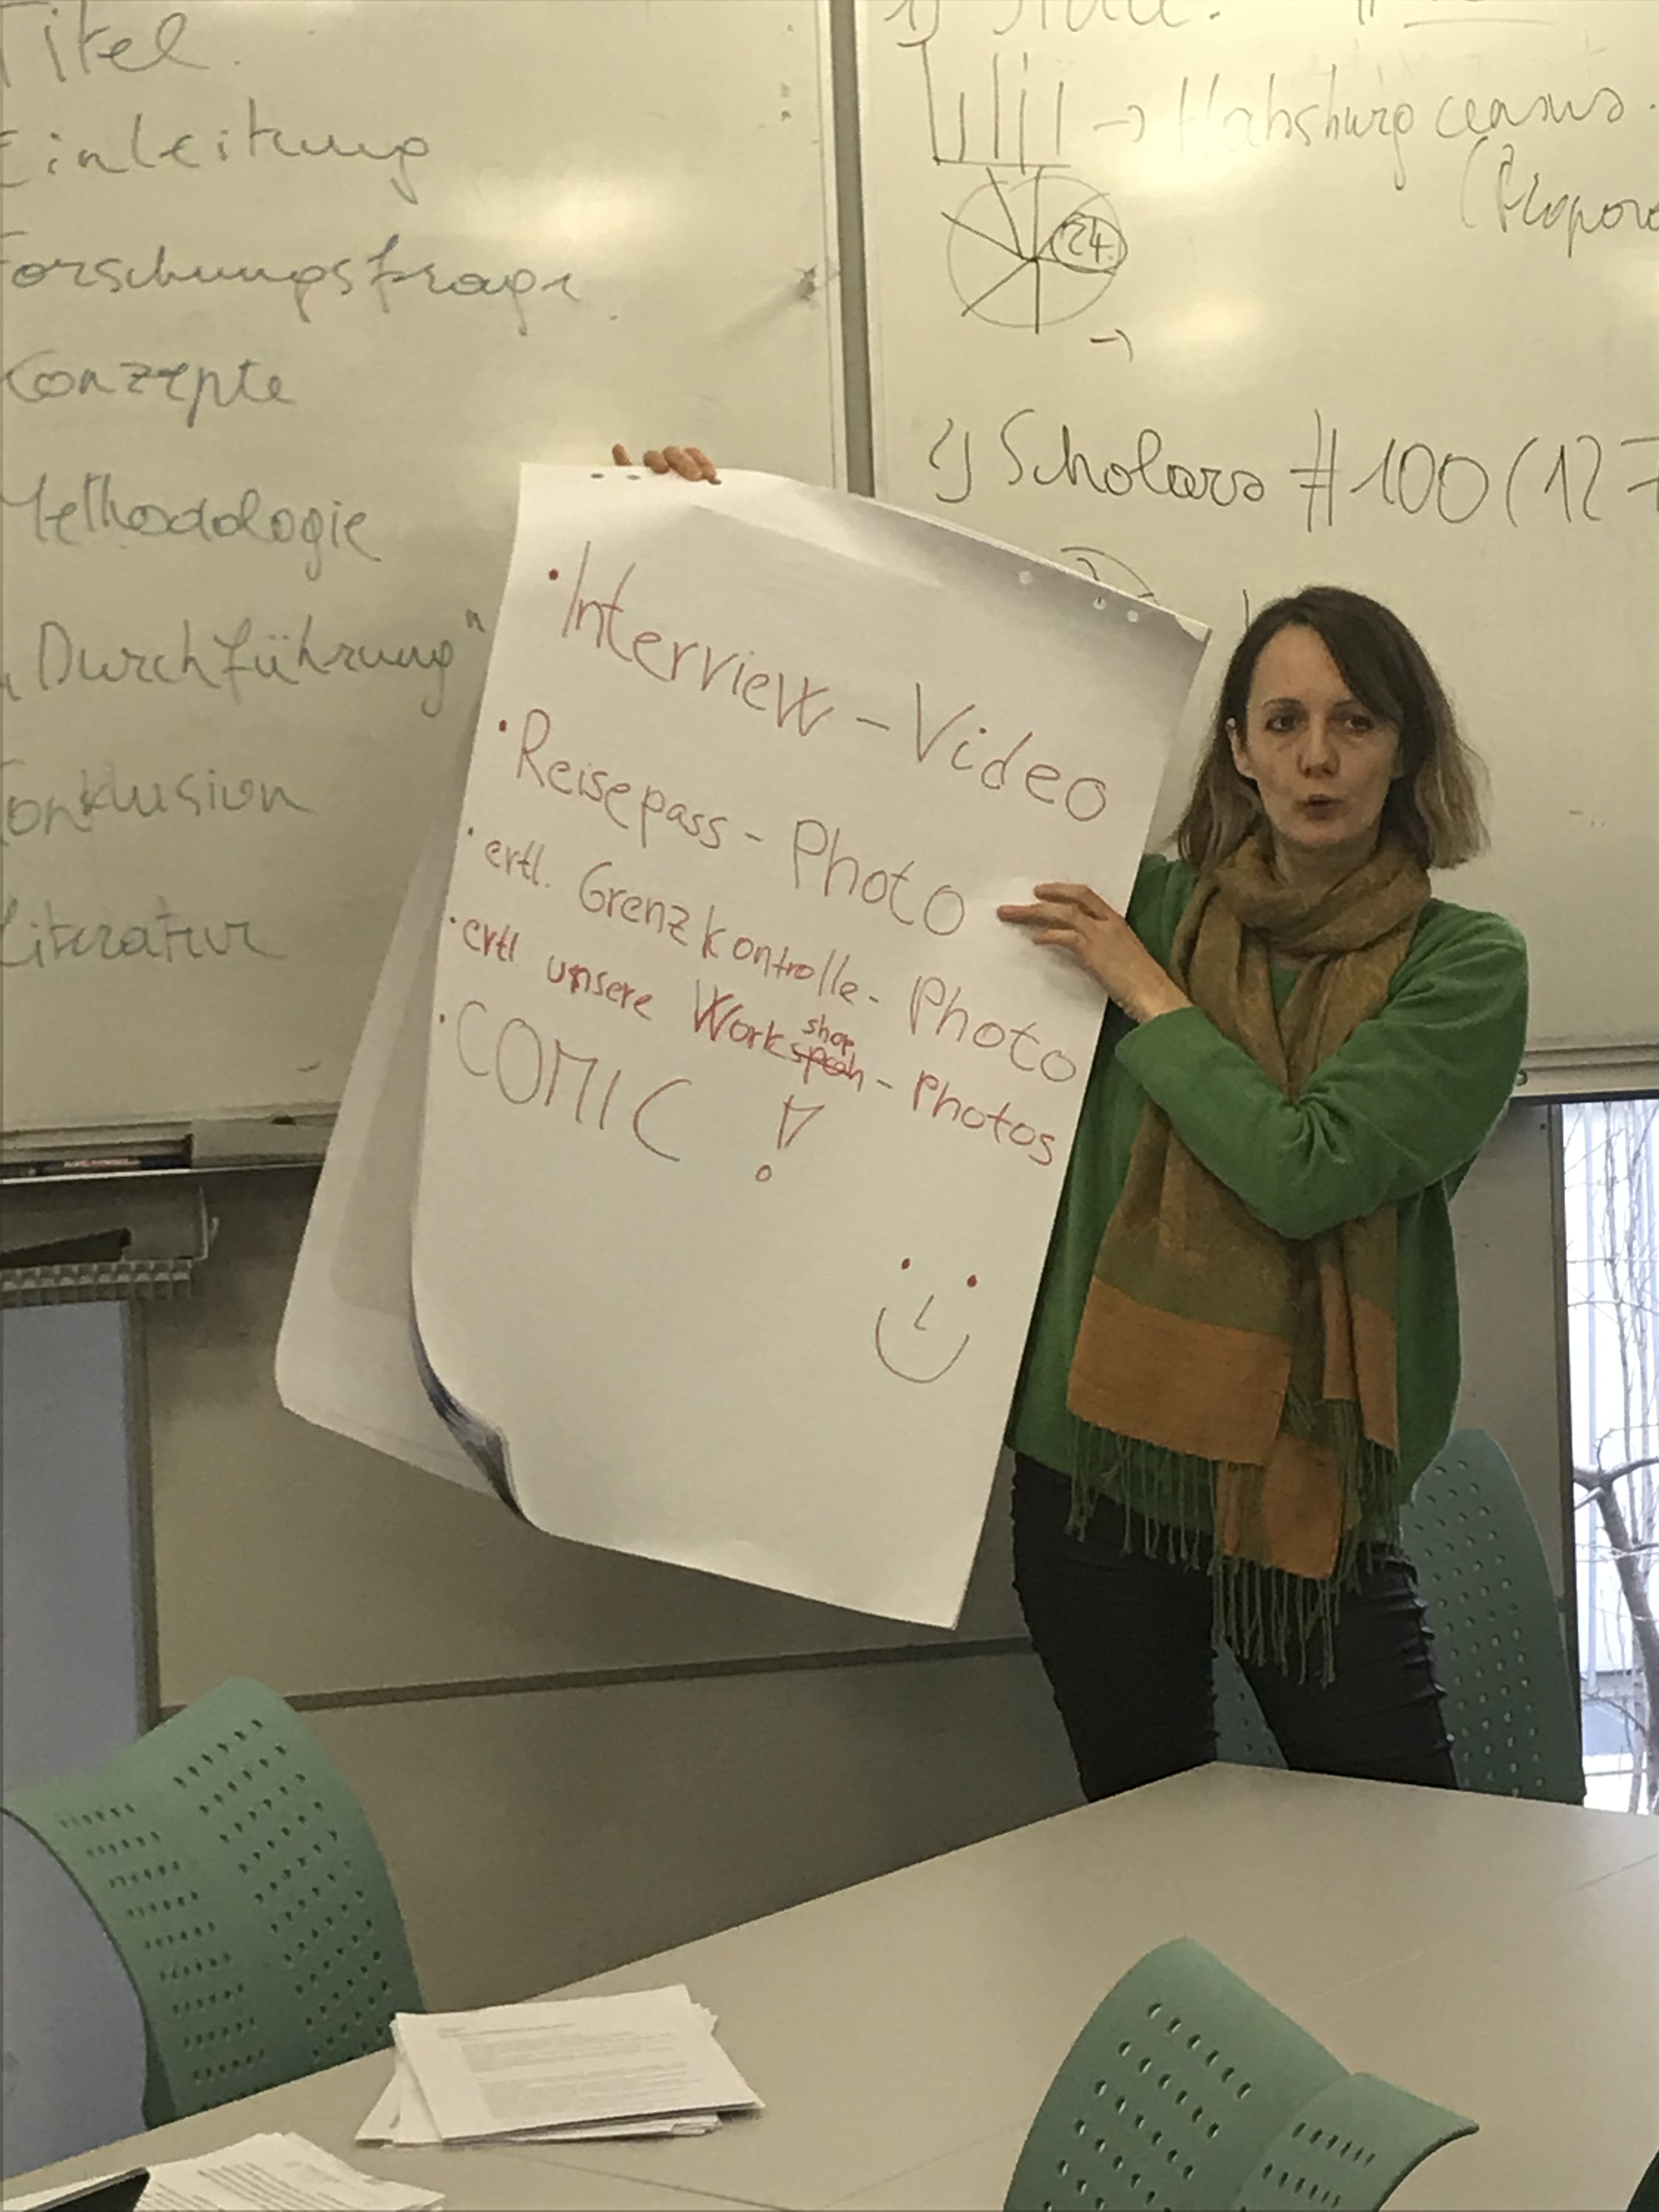 Titel.
Einleitung
Forschungsfrage
Konzepte
Methodologie
„Durchführung"
Konklusion
Literatur
→ Habsburg census.
24.
→
2) Scholars # 100 (127
• Interview - Video
• Reisepass - Photo
• ertl. Grenzkontrolle - Photo
• ertl unsere Workshop - Photos
• COMIC !